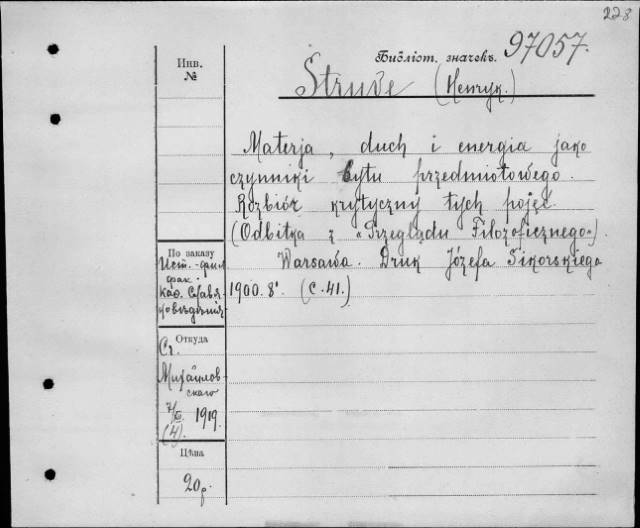 228
Инв.
№
Библіот. значекъ. 97057.
Struve (Henryk.)
Materja, duch i energia jako
czynniki bytu przedmiotowego.
Rozbiór krytyczny tych pojęć.
(Odbitka z «Przeglądu Filozoficznego»).
Warszawa. Druk Józefa Sikorskiego
1900. 8°. (с. 41.)
По заказу
Ист.-фил
фак.
каѳ. Славя-
новѣдѣнія
Откуда
Ст.
Михайлов-
скаго
1919.
(4).
Цѣна
20 р.